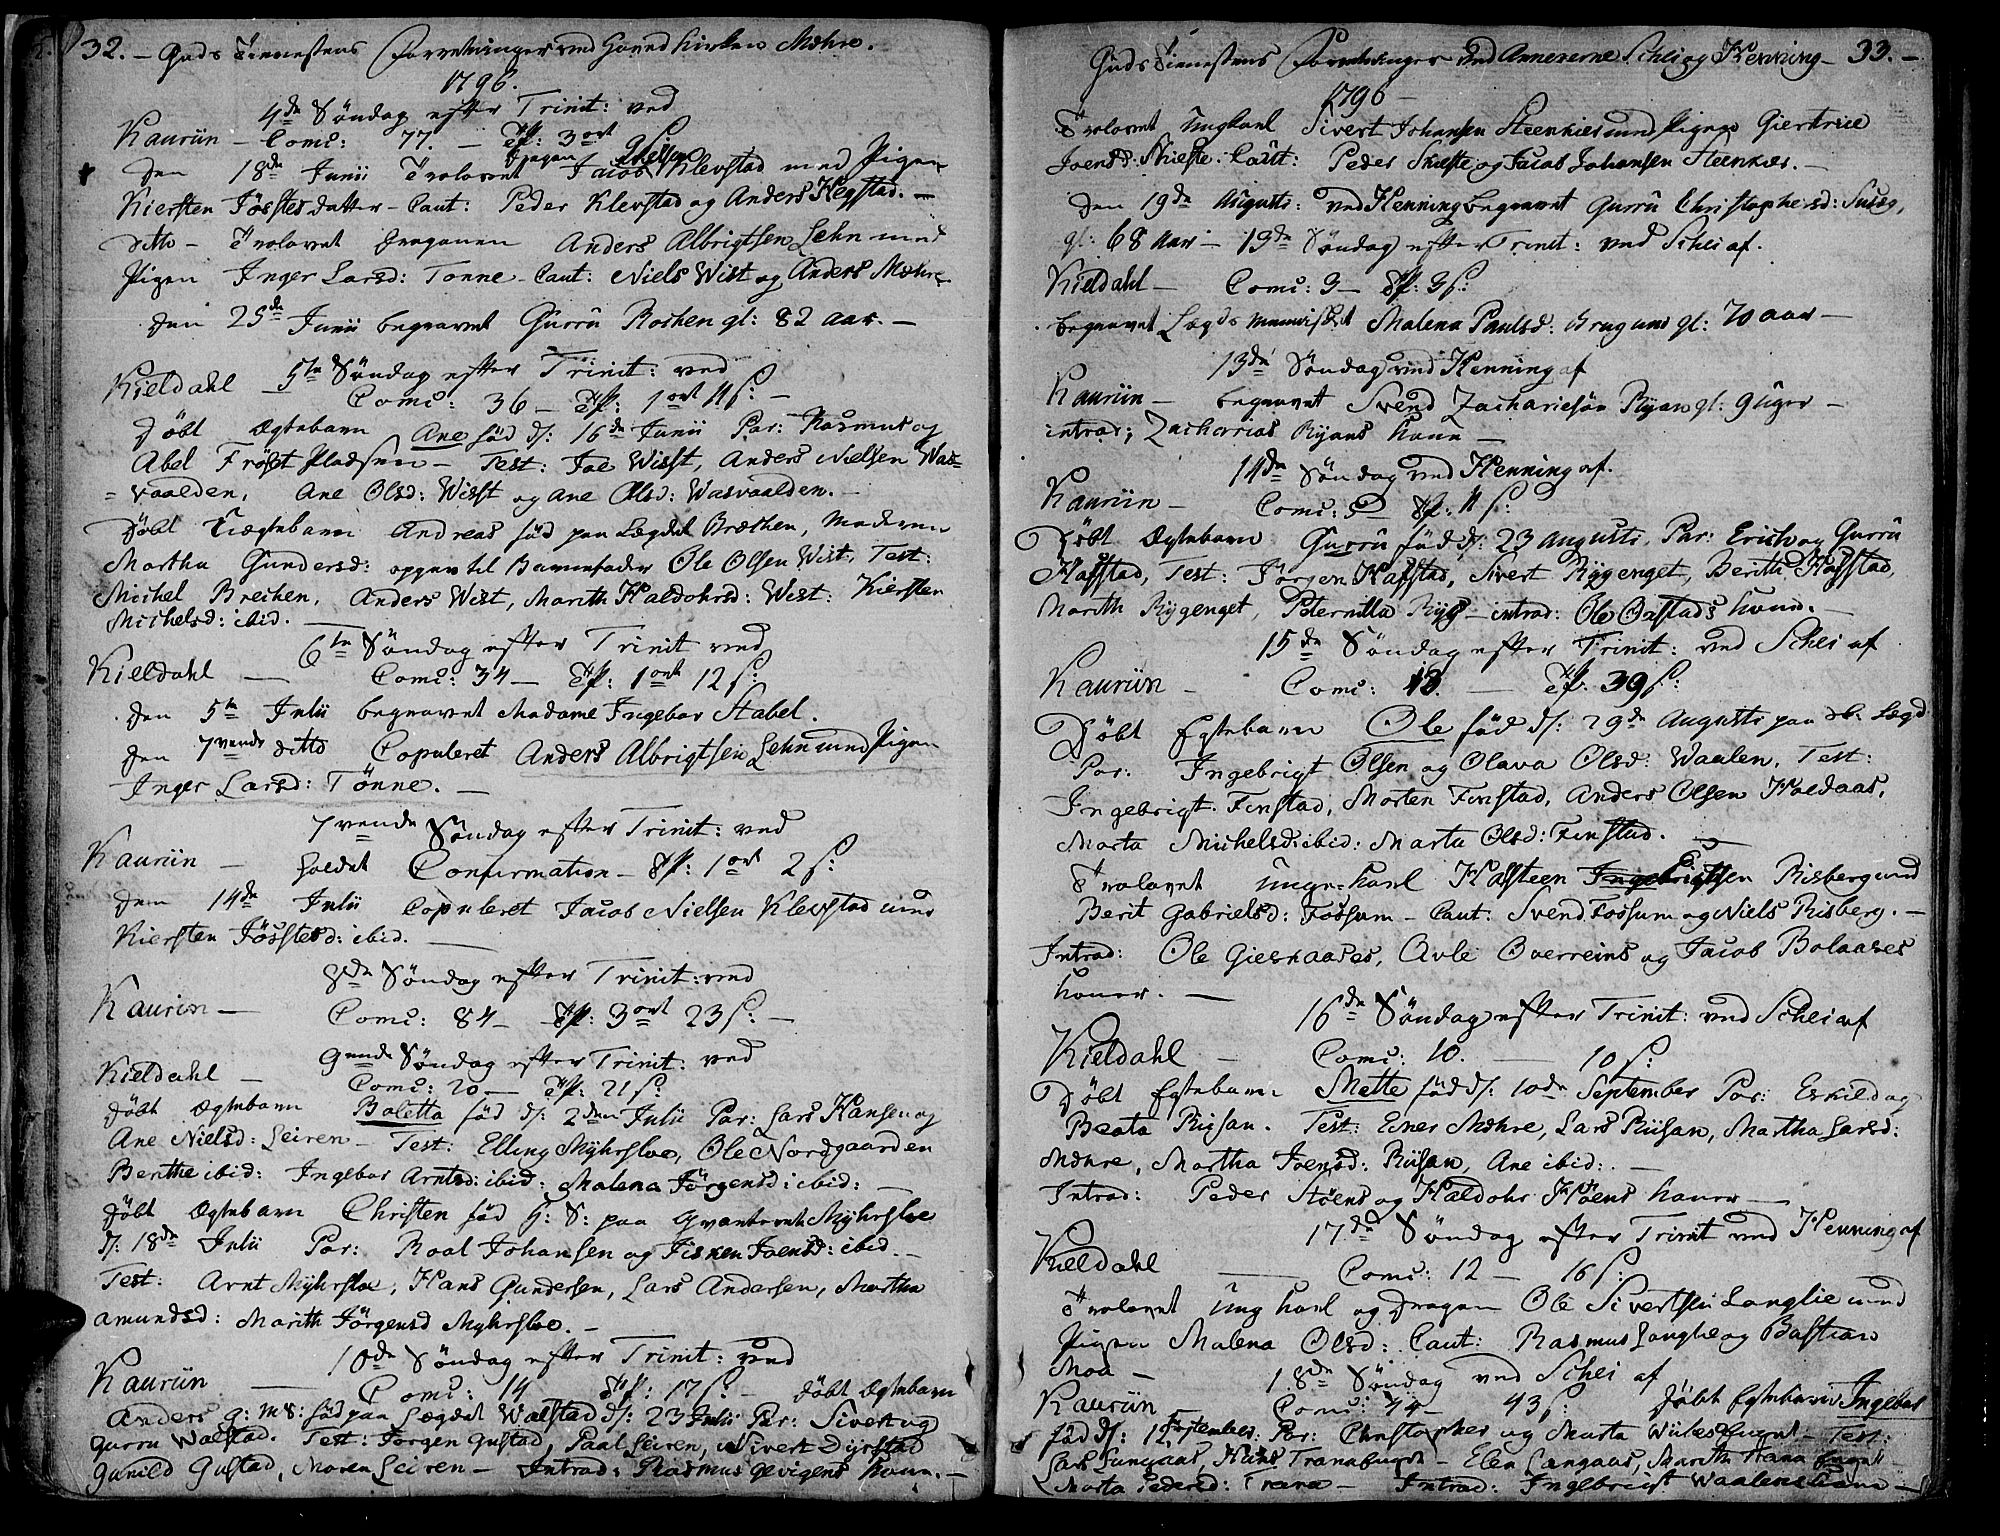 32. – Guds Tienestens Forretninger ved Hoved Kirken Mæhre.
1796.
4de Søndag efter Trinit: ved
Kauriin – Comu: 77. – Tfl: 3 ort
Den 18de Junii Trolovet Dragon Jacob Nielsen Klevstad med Pigen
Kiersten Jösstesdatter – Caut: Peder Klevstad og Anders Hegstad. –
ditto – Trolovet Dragonen Anders Albrigtsen Lehn med
Pigen Inger Larsd: Tønne – Caut: Niels Wist og Anders Mæhre
Den 25de Junii begravet Gurru Rochen gl: 82 aar. –
5te Søndag efter Trinit: ved
Kieldahl – Comu: 36 – Tfl: 1 ort 11 s: –
Døbt Ægtebarn Ane fød d: 16de Junii Par: Rasmus og
Abel Fröset Pladsen – Test: Joe Wisst, Anders Nielsen Was=
=vaalden, Ane Olsd: Wisst og Ane Olsd: Wasvaalden. –
Døbt Uægtebarn Andreas fød paa Lægdet Bræchen, Moderen
Martha Gundersd: opgav til Barnefader Ole Olsen Wist. Test:
Michel Brechen, Anders Wist, Marith Haldohrsd: Wist: Kiersten
Michelsd: ibid.
6te Søndag efter Trinit ved
Kieldahl – Comu: 34 – Tfl: 1 ort 12 s:
Den 5te Julii begravet Madame Ingebor Stabel.
Den 7vende ditto Copuleret Anders Albrigtsen Lehn med Pigen
Inger Larsd: Tönne. –
7vende Søndag efter Trinit: ved
Kauriin – holdet Confirmation – Tfl: 1 ort 2 s:
Den 14de Julii Copuleret Jacob Nielsen Klevstad med
Kiersten Jössted: ibid.
8de Søndag efter Trinit: ved
Kaurin – Comu: 84 – Tfl: 3 ort 23 s: –
9ende Søndag efter Trinit: ved
Kieldahl – Comu: 20 – Tfl: 21 s:
Døbt Ægtebarn Boletta fød d: 2den Julii Par: Lars Hansen og
Ane Nielsd: Leiren – Test: Elling Myhrsloe, Ole Nordgaarden
Berithe ibid: Ingebor Arntsd: ibid: Malena Jörgensd: ibid: –
Døbt Ægtebarn Christen fød H: S: paa Qvarteret Myhrsloe
d: 18de Julii Par: Roal Johansen og Fisken Joensd: ibid. –
Test: Arnt Myhrsloe, Hans Gundersen, Lars Andersen, Martha
Amundsd: Marith Jörgensd Myhrsloe. –
10de Søndag efter Trinit: ved
Kauriin – Comu: 14 Tfl: 17 s: – Døbt Ægtebarn
Anders g: ms: fød paa Lægdet Walstad d: 23 Julii Par: Sivert og
Gurru Walstad. Test: Jørgen Gustad, Paal Leiren, Sivert Dyrstad
Gunild Gustad, Maren Leiren – Introd: Rasmus Gevigens Kone. –
Guds Tienestens Forretninger ved Annexerne Schei og Henning – 33. –
1796 –
Trolovet Ungkarl Sivert Johansen Steenkier med Pigen Giertrue
Joensd: Skiefte: Caut: Peder Skiefte og Jacob Johansen Steenkier. –
Den 19de Augusti: ved Henning begravet Gurru Christophersd:
gl: 68 Aar – 13de Søndag efter Trinit: ved Schei af.
Kieldahl – Comu: 3 – Tfl: 3 s:
begravet Lægds Malena Paulsd: gl: 70 aar –
13de Søndag ved Henning af
Kauriin – begravet Svend Zachariesön Ryan gl: 9 uger –
introd: Zacharias Ryans Kone –
14de Søndag ved Henning af.
Kauriin – Comu: 5 Tfl: 11 s:
Døbt Ægtebarn Gurru fød d: 23 Augusti. Par: Erich og Gurru
Hafstad, Test: Jörgen Hafstad, Sivert Rygenget, Berith Hafstad
Marith Rygenget, Peternilla Ryg – introd: Ole Oxstads Kone. –
15de Søndag efter Trinit: ved Schei af
Kauriin – Comu: 18 – Tfl: 39 s:
Døbt Egtebarn Ole fød d: 29de Augusti paa Lægd
Par: Ingebrigt Olsen og Olava Olsd: Waalen, Test:
Ingebrigt Finstad, Morten Finstad, Anders Olsen Holdaas,
Marta Michelsd: ibid: Marta Olsd: Finstad.
Trolovet Unge-Karl Hafsteen Ingebrigtsen Risberg med
Berit Gabrielsd: Fossum – Caut: Svend Fossum og Niels Risberg. –
Introd: Ole Gieskaases, Avle Overreins og Jacob Bolaases
Koner. –
16de Søndag efter Trinit: ved Schei af
Kieldahl – Comu: 10. – 10 s:
Døbt Egtebarn Mette fød d: 10de September Par: Eskild og
Beata Riisan. Test: Ener Mæhre, Lars Riisan, Martha Larsd:
Mæhre, Martha Joensd: Riisan, Ane ibid: –
Introd: Peder Støens og Haldohr Høens Koner –
17de Søndag efter Trinit ved Henning af
Kieldahl – Comu: 12 – 16 s:
Trolovet Ung Karl og Dragon Ole Sivertsen Langlie med
Pigen Malena Olsd: Caut: Rasmus Langlie og Bastian
Moa –
18de Søndag ved Schei af
Kauriin – Comu: 44 – 43 s: Døbt Egtebarn Ingebor
fød d: 12 September: Par: Christopher og Marta – Test:
Lars Langaas, – Elen Langaas, Marith
Marta Pedersd: Trana – Introd: Ingebrigt Waalens Kone –